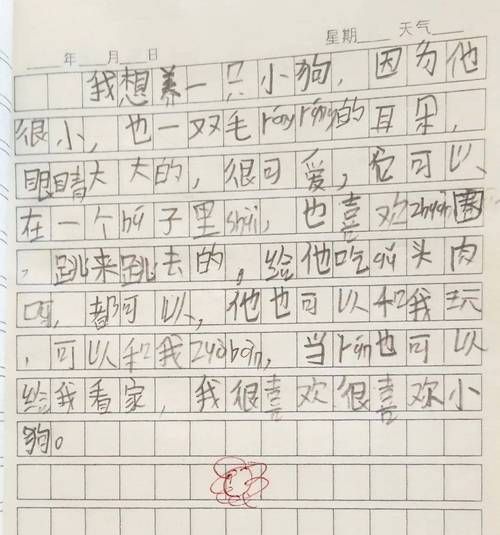 星期 天气
年 月 日
我想养一只小狗，因为他
很小，也一双毛róng róng的耳朵，
眼睛大大的，很可爱，它可以
在一个hé子里shuì，也喜欢zhuàn圈
，跳来跳去的，给他吃gǔ头肉
，都可以，他也可以和我玩
，可以和我zuòbàn，当rán也可以
给我看家，我很喜欢很喜欢小
狗。